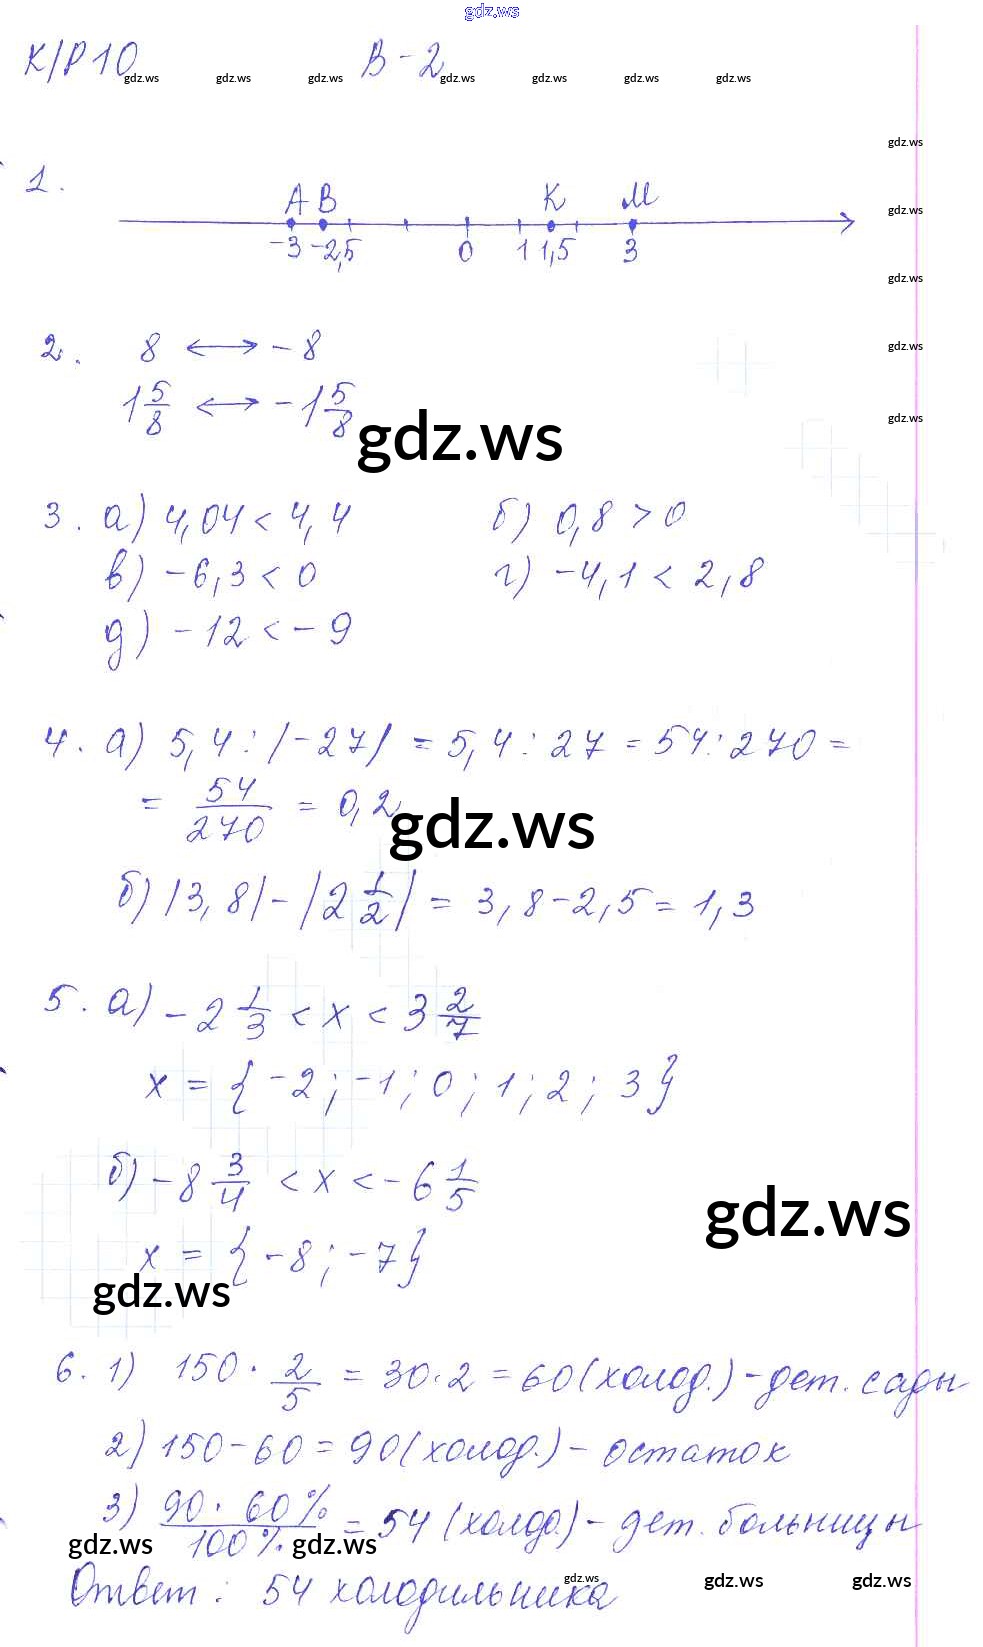 gdz.ws
К/Р 10 В-2
gdz.ws gdz.ws gdz.ws gdz.ws gdz.ws gdz.ws gdz.ws
gdz.ws
1.
A B K M
gdz.ws
-3 -2,5 0 1 1,5 3
gdz.ws
2. 8 ⟷ -8
gdz.ws
1 5/8 ⟷ -1 5/8
gdz.ws
gdz.ws
3. а) 4,04 < 4,4 б) 0,8 > 0
в) -6,3 < 0 г) -4,1 < 2,8
д) -12 < -9
4. а) 5,4 : |-27| = 5,4 : 27 = 54 : 270 =
= 54/270 = 0,2
gdz.ws
б) |3,8| - |2 1/2| = 3,8 - 2,5 = 1,3
5. а) -2 1/3 < x < 3 2/7
x = {-2; -1; 0; 1; 2; 3}
б) -8 3/4 < x < -6 1/5
gdz.ws
x = {-8; -7}
gdz.ws
6. 1) 150 · 2/5 = 30 · 2 = 60 (холод.) - дет. сады
2) 150 - 60 = 90 (холод.) - остаток
3) 90 · 60% / 100% = 54 (холод.) - дет. больницы
gdz.ws gdz.ws
Ответ: 54 холодильника
gdz.ws gdz.ws gdz.ws